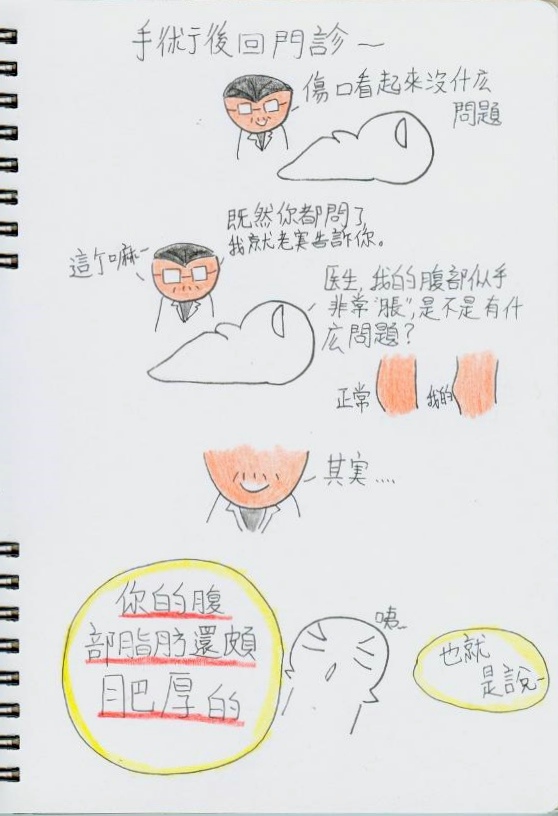 手術後回門診~
傷口看起來沒什広
問題
既然你都問了
我就老実告訴你。
這个嘛~
医生,我的腹部似乎
非常"脹",是不是有什
広問題?
正常
我的
其実....
你的腹
部脂肪還頗
肥厚的
咦~
也就
是說~